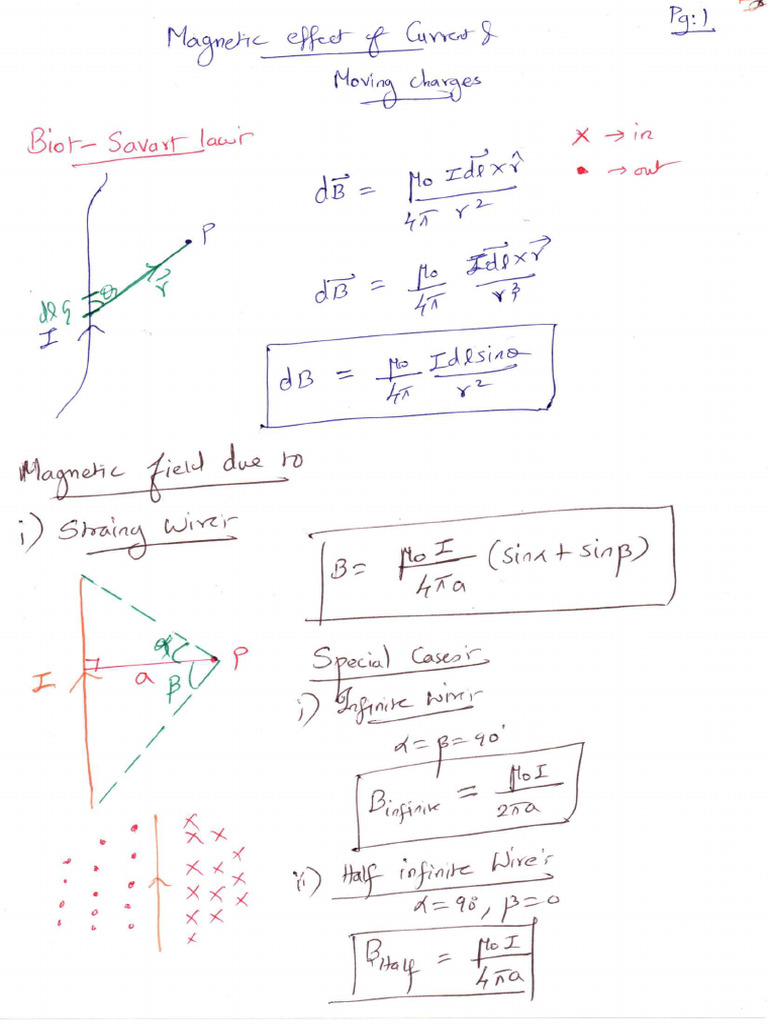 Pg:1
Magnetic effect of Current &
Moving charges
Biot-Savart law:-
x → in
• → out
dB⃗ = μ₀/4π Idl⃗ × r̂/r²
P
θ
r⃗
dl {
I
dB⃗ = μ₀/4π Idl⃗ × r⃗/r³
dB = μ₀/4π Idlsinθ/r²
Magnetic field due to
i) Straing Wire:-
B = μ₀I/4πa (sinα + sinβ)
α
P
a
β
I
Special Cases:-
i) Infinite Wire:-
α = β = 90°
B infinite = μ₀I/2πa
ii) Half infinite Wire:-
α = 90°, β = 0
B Half = μ₀I/4πa